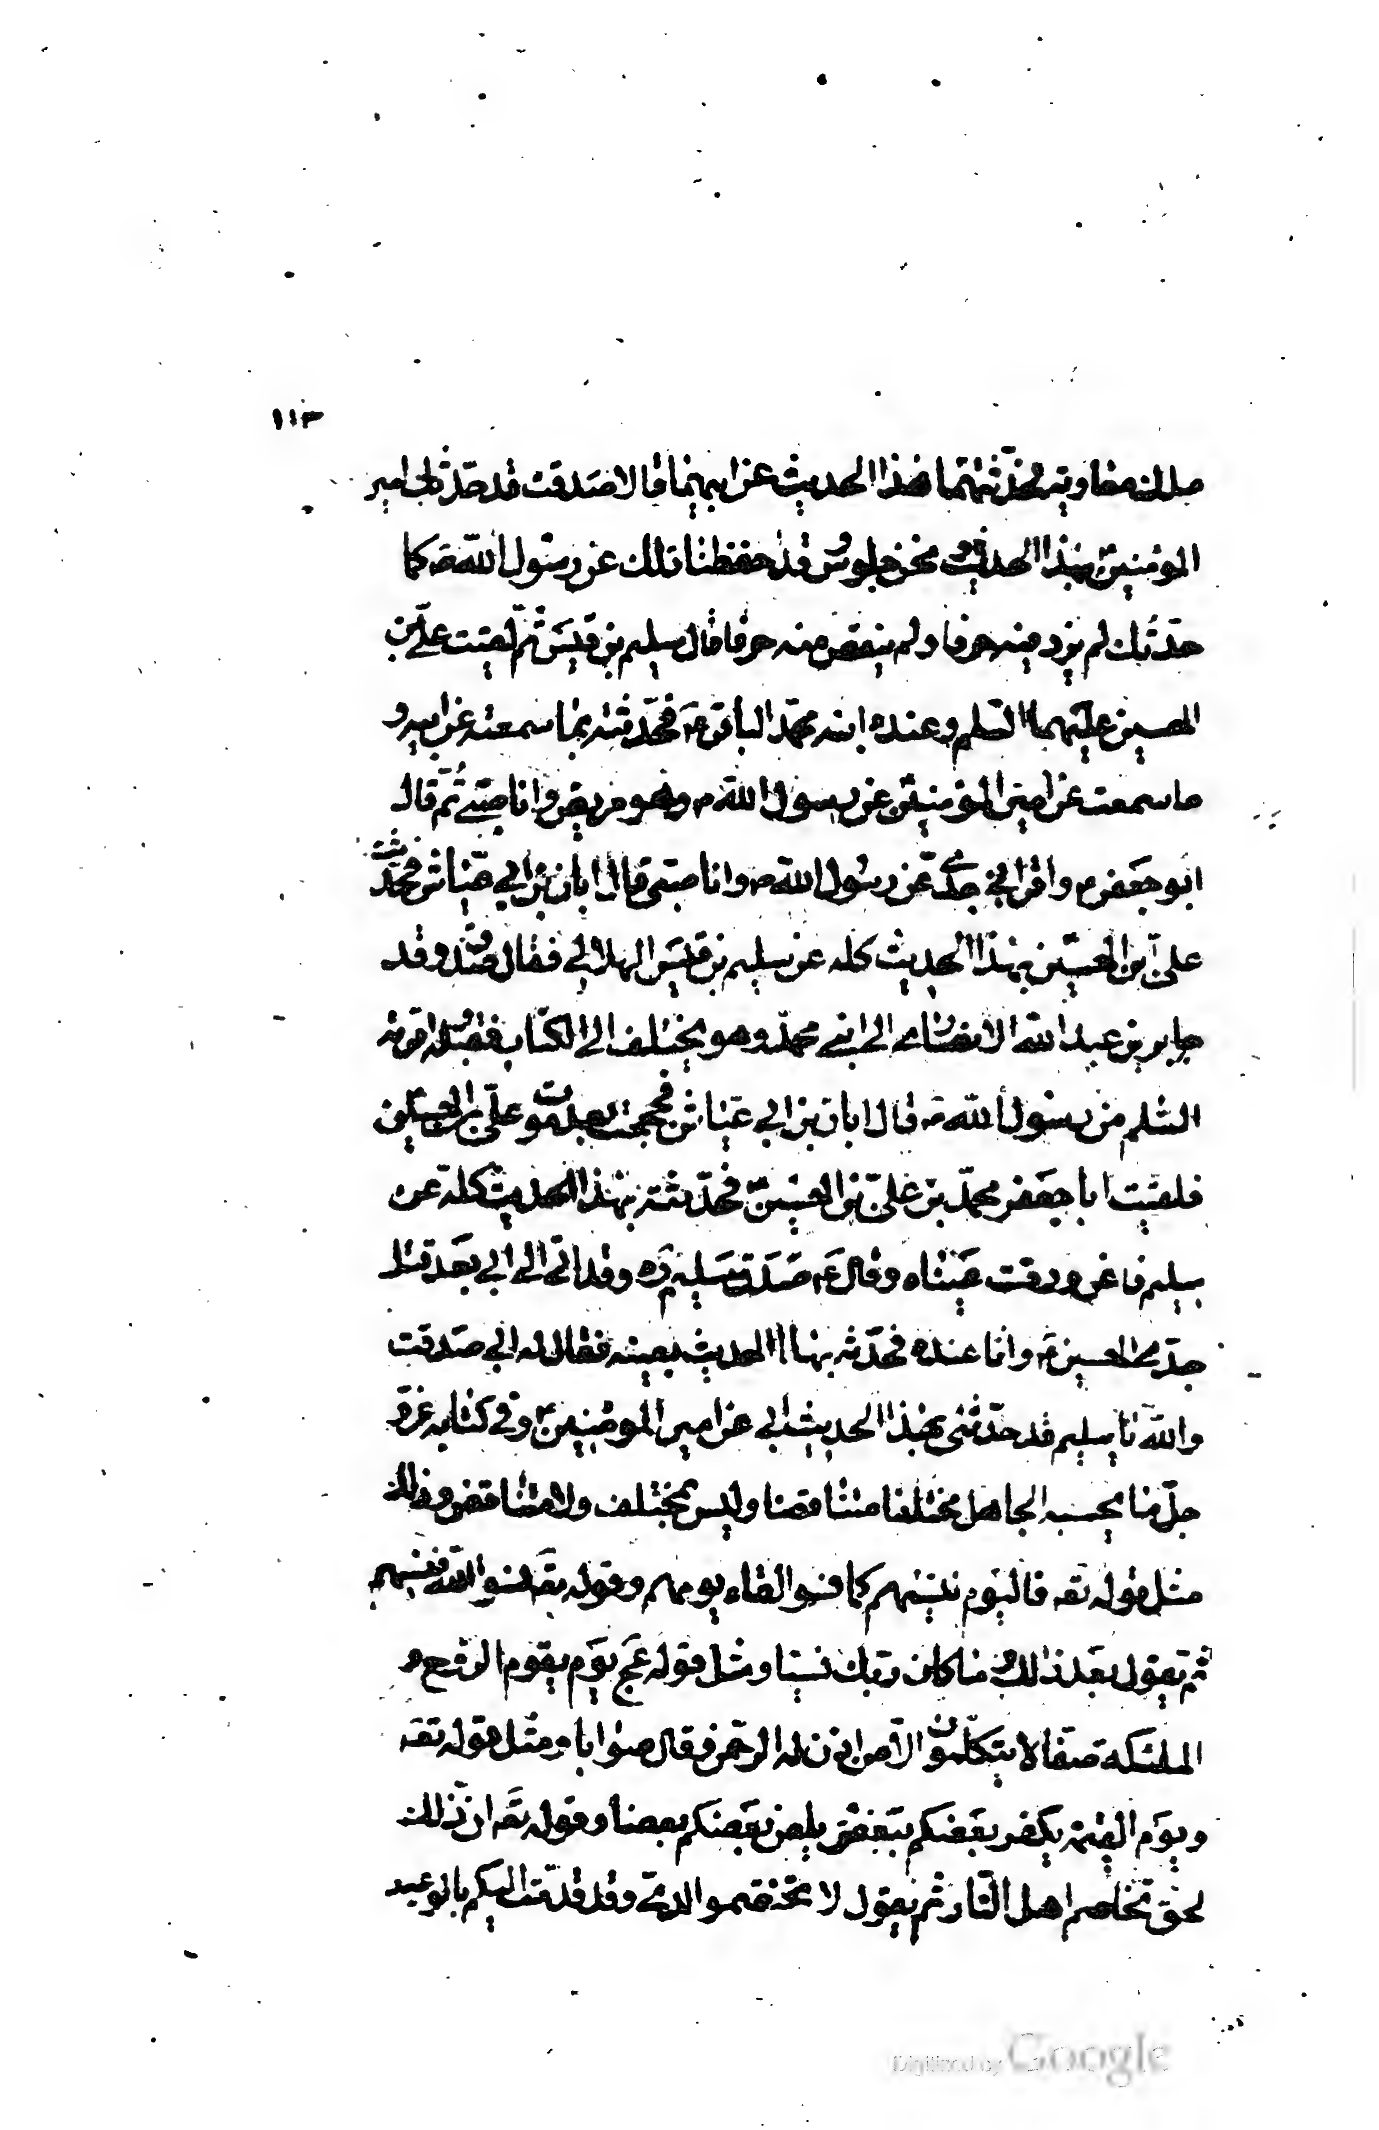 ١١٣
ملك معاوية فحدّثتهما بهذا الحديث عن ابيهما قالا صدقت قد حدّثك امير
المؤمنين بهذا الحديث ونحن جلوس قد حفظنا ذلك عن رسول اللّه ص كما
حدّثك لم يزد فيه حرفا ولم ينقص منه حرفا قال سليم بن قيس ثمّ لقيت علىّ بن
الحسين عليهما السّلم وعنده ابنه محمّد الباقر ع فحدّثته بما سمعته عن ابيه و
ما سمعت عن امير المؤمنين عن رسول اللّه ص وهو مريض وانا صبىّ ثمّ قال
ابو جعفر ع واقرانى جدّى عن رسول اللّه ص وانا صبى قال ابان بن ابي عيّاش فحدّثت
علىّ ابن الحسين بهذا الحديث كله عن سليم بن قيس الهلالي فقال صدق وقد
جابر بن عبد اللّه الانصارى الى ابنى محمّد وهو يختلف الى الكتّاب فقبّله اقرئه
السّلم من رسول اللّه ص قال ابان بن ابي عيّاش فحججت بعد موت علىّ بن الحسين
فلقيت ابا جعفر محمّد بن علىّ بن الحسين فحدّثته بهذا الحديث كله عن
سليم فاغرورقت عيناه وقال ع صدق سليم ره وقد اتى الى ابي بعد قتل
جدّى الحسين ع وانا عنده فحدّثه بهذا الحديث بعينه فقال له ابي صدقت
واللّه يا سليم قد حدّثنى بهذا الحديث ابي عن امير المؤمنين وفي كتابه عزّ و
جلّ ما يحسبه الجاهل مختلفا متناقضا وليس بمختلف ولا متناقض وذلك
مثل قوله تعه فاليوم ننسيهم كما نسوا لقاء يومهم وقوله تعه نسوا اللّه فنسيهم
ثم يقول بعد ذلك وما كان ربّك نسيّا ومثل قوله عج يوم يقوم الروح و
الملئكة صفّا لا يتكلّمون الّا من اذن له الرحمن وقال صوابا ومثل قوله تعه
ويوم القيمة يكفر بعضكم ببعض ويلعن بعضكم بعضا وقوله تعه ان ذلك
لحق تخاصم اهل النّار ثم يقول لا تختصموا لدىّ وقد قدّمت اليكم بالوعيد
Digitized by Google